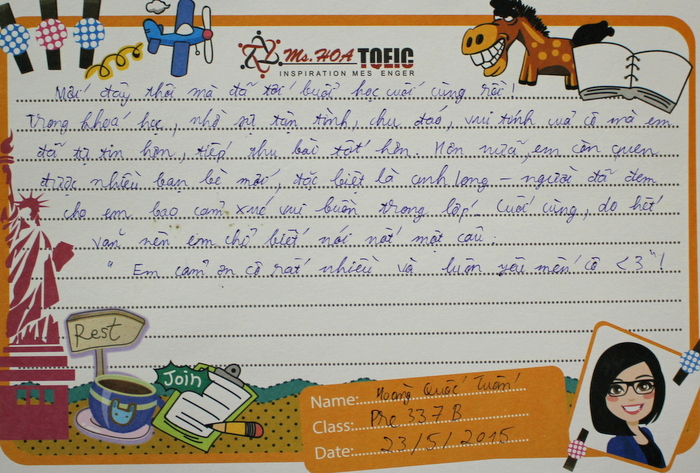 Ms. HOA TOEIC
INSPIRATION MES ENGER
Mới đây thôi mà đã tới buổi học cuối cùng rồi!
Trong khoá học, nhờ sự tận tình, chu đáo, vui tính của cô mà em
đã tự tin hơn, tiếp thu bài tốt hơn. Hơn nữa, em còn quen
được nhiều bạn bè mới, đặc biệt là anh Long – người đã đem
cho em bao cảm xúc vui buồn trong lớp. Cuối cùng, do hết
văn nên em chỉ biết nói nốt một câu:
"Em cảm ơn cô rất nhiều và luôn yêu mến cô <3"!
Rest
Join
Name: Hoàng Quốc Tuấn
Class: Pre 337B
Date: 23/5/2015